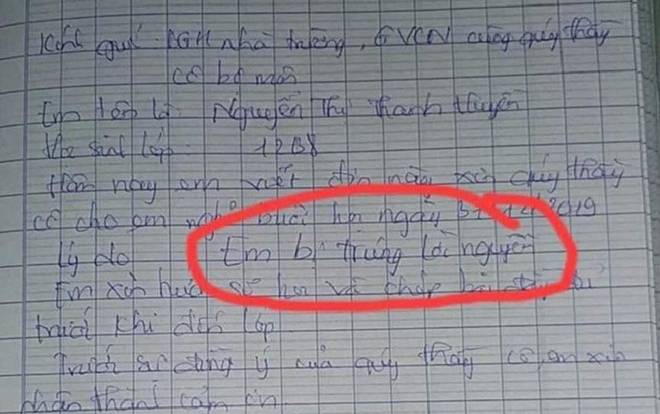 Kính quý BGH nhà trường, GVCN cùng quý thầy
cô bộ môn
Em tên là: Nguyễn Thị Thanh Huyền
Học sinh lớp: 12B8
Hôm nay em viết đơn này xin quý thầy
cô cho em nghỉ buổi học ngày 2019
Lý do Em bị trúng lời nguyền
Em xin hứa sẽ học và chép bài đầy đủ
trước khi đến lớp
Trước sự đồng ý của quý thầy cô, em xin
chân thành cảm ơn.